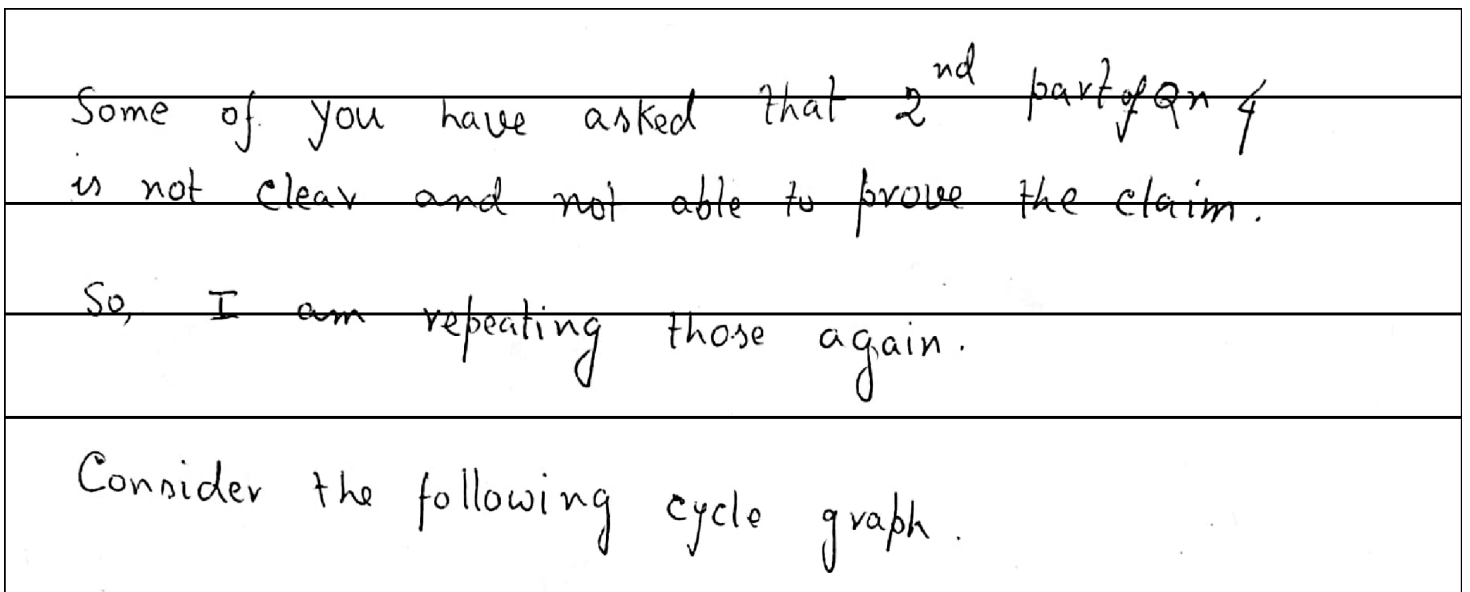 Some of you have asked that 2nd part of Qn 4
is not clear and not able to prove the claim.
So, I am repeating those again.
Consider the following cycle graph.